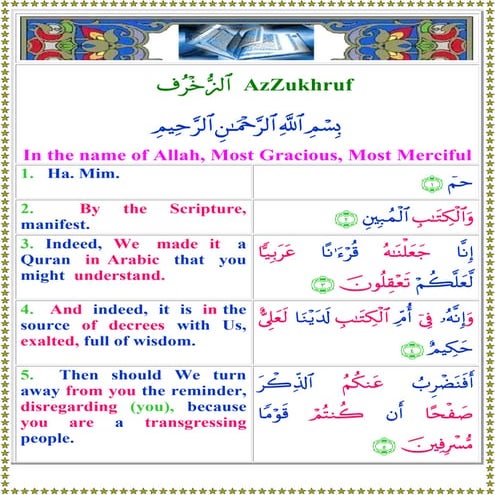 الزُّخْرُف AzZukhruf
بِسْمِ اللَّهِ الرَّحْمَٰنِ الرَّحِيمِ
In the name of Allah, Most Gracious, Most Merciful
1. Ha. Mim.
حمٓ ۝١
2. By the Scripture,
manifest.
وَالْكِتَٰبِ الْمُبِينِ ۝٢
3. Indeed, We made it a
Quran in Arabic that you
might understand.
إِنَّا جَعَلْنَٰهُ قُرْءَٰنًا عَرَبِيًّا
لَّعَلَّكُمْ تَعْقِلُونَ ۝٣
4. And indeed, it is in the
source of decrees with Us,
exalted, full of wisdom.
وَإِنَّهُۥ فِىٓ أُمِّ الْكِتَٰبِ لَدَيْنَا لَعَلِىٌّ
حَكِيمٌ ۝٤
5. Then should We turn
away from you the reminder,
disregarding (you), because
you are a transgressing
people.
أَفَنَضْرِبُ عَنكُمُ الذِّكْرَ
صَفْحًا أَن كُنتُمْ قَوْمًا
مُّسْرِفِينَ ۝٥